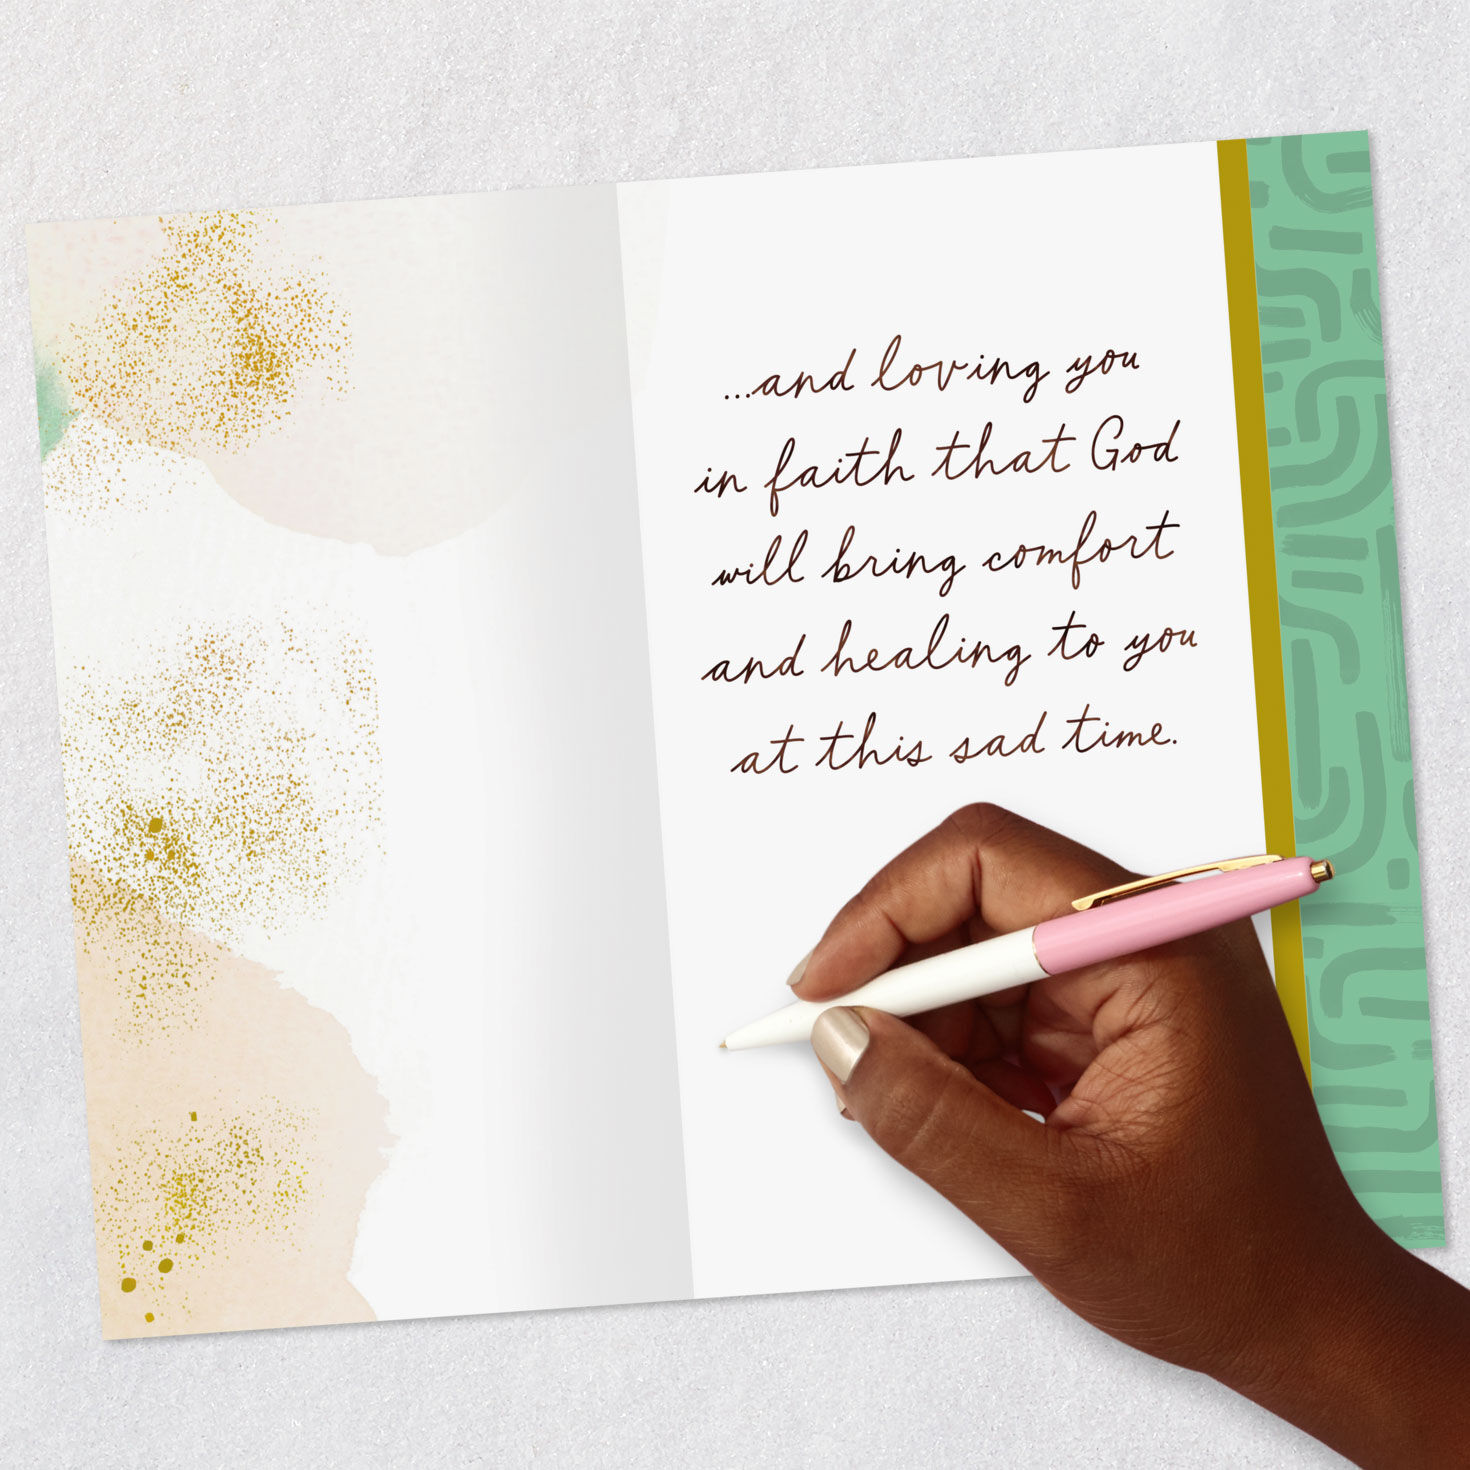 ...and loving you
in faith that God
will bring comfort
and healing to you
at this sad time.